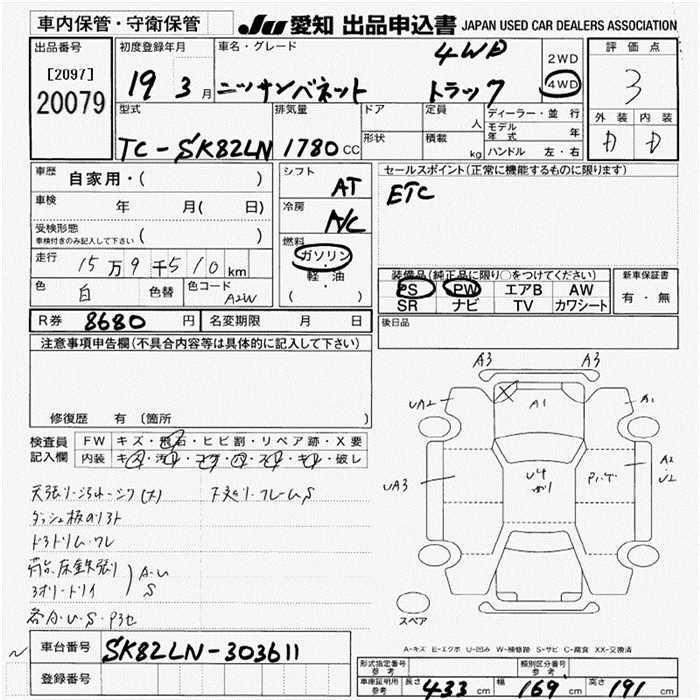 車内保管・守衛保管
JU 愛知 出品申込書 JAPAN USED CAR DEALERS ASSOCIATION
出品番号
[2097]
20079
初度登録年月
19 3月
車名・グレード
4WD
ニッサンバネット トラック
2WD
4WD
評価点
3
外装 内装
D D
型式
TC-SK82LN
排気量
1780cc
ドア
形状
定員
人
積載
kg
ディーラー・並行
モデル年式 年
ハンドル 左・右
車歴
自家用・( )
車検
年 月( 日)
受検形態
車検付きのみ記入して下さい ( )
走行
15万9千510km
色
白
色替
色コード
A2W
シフト
AT
冷房
A/C
燃料
ガソリン
軽・油
( )
セールスポイント(正常に機能するものに限ります)
ETC
装備品(純正品に限り○をつけてください)
PS PW エアB AW
SR ナビ TV カワシート
新車保証書
有・無
後日品
R券 8680 円
名変期限 月 日
注意事項申告欄(不具合内容等は具体的に記入して下さい)
修復歴 有(箇所
検査員記入欄
FW キズ・飛石・ヒビ割・リペア跡・X要
内装 キズ・汚れ・コゲ・穴・スレ・キレ・破レ
天張り・汚れ
下廻り・フレームS
A・U
S
A3 A3
UA2
A1
A1
UA3
U4
A2
U2
スペア
A-キズ E-エクボ U-凹み W-補修跡 S-サビ C-腐食 XX-交換済
車台番号
SK82LN-303611
登録番号
形式指定番号 参考
類別区分番号 参考
車庫証明用 参考
長さ 433 cm 幅 169 cm 高さ 191 cm